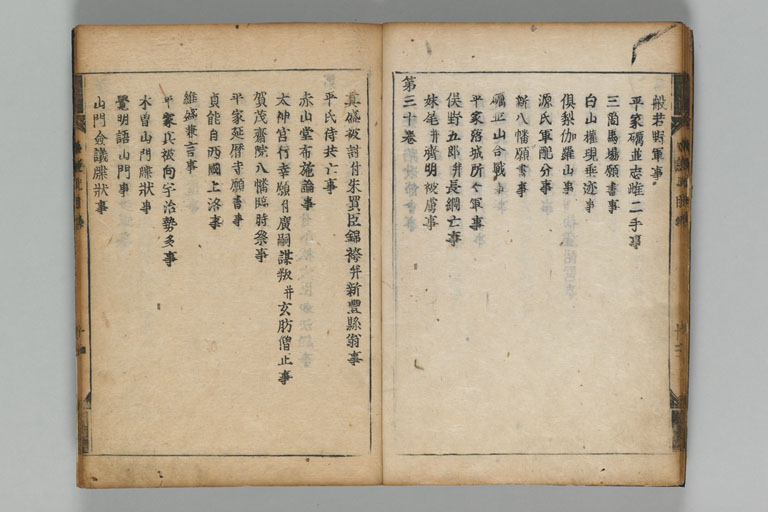 般若野軍事
平家礪並志雄二手事
三箇馬場願書事
白山権現垂迹事
倶梨伽羅山事
源氏軍配分事
新八幡願書事
礪並山合戰事
平家落城所々軍事
俣野五郎幷長綱亡事
妹尾幷齊明被虜事
第三十巻
真盛被討付朱買臣錦袴幷新豐縣翁事
平氏侍共亡事
赤山堂布施論事
太神宮行幸願付廣嗣謀叛幷玄昉僧正事
賀茂齋院八幡臨時祭事
平家延暦寺願書事
貞能自西國上洛事
維盛兼言事
平家兵被向宇治勢多事
木曽山門牒状事
覺明語山門事
山門僉議牒状事